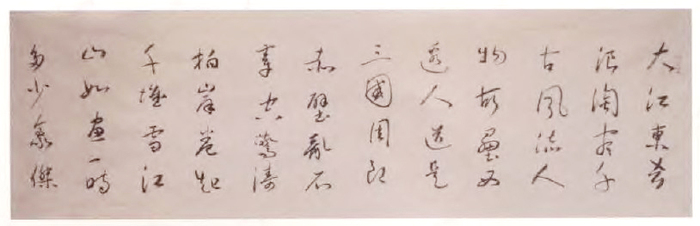 大江東去
浪淘盡千
古風流人
物故壘西
邊人道是
三國周郎
赤壁亂石
穿空驚濤
拍岸卷起
千堆雪江
山如畫一時
多少豪傑